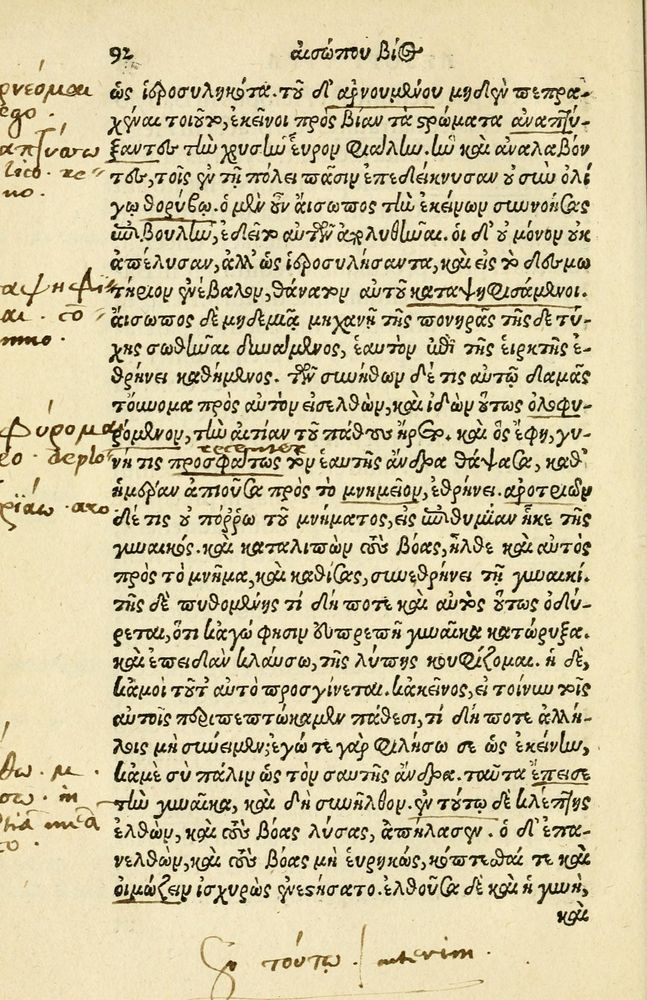 92 αἰσώπου βίος
ὡς ἱεροσυληκότα. τοῦ δ' ἀρνουμένου μηδὲν πεπρα-
χέναι τοιοῦτον, ἐκεῖνοι πρὸς βίαν τὰ στρώματα ἀναπτύ-
ξαντες τὴν χρυσῆν εὗρον φιάλην. ἣν καὶ ἀναλαβόν
τες, τοῖς ἐν τῇ πόλει πᾶσιν ἐπεδείκνυσαν οὐ σὺν ὀλί
γῳ θορύβῳ. ὁ μὲν οὖν αἴσωπος τὴν ἐκείνων συννοήσας
ἐπιβουλὴν, ἐδεῖτο αὐτῶν ἀπολυθῆναι. οἱ δ' οὐ μόνον οὐκ
ἀπέλυσαν, ἀλλ' ὡς ἱεροσυλήσαντα, καὶ εἰς τὸ δεσμω
τήριον ἐνέβαλον, θάνατον αὐτοῦ καταψηφισάμενοι.
αἴσωπος δὲ μηδεμιᾷ μηχανῇ τῆς πονηρᾶς τῆσδε τύ-
χης σωθῆναι δυνάμενος, ἑαυτὸν ἐπὶ τῆς εἱρκτῆς ἐ-
θρήνει καθήμενος. τῶν συνήθων δέ τις αὐτῷ δαμᾶς
τοὔνομα πρὸς αὐτὸν εἰσελθὼν, καὶ ἰδὼν οὕτως ὀλοφυ-
ρόμενον, τὴν αἰτίαν τοῦ πάθους ἤρετο. καὶ ὃς ἔφη, γυ-
νή τις προσφάτως τὸν ἑαυτῆς ἄνδρα θάψασα, καθ'
ἡμέραν ἀπιοῦσα πρὸς τὸ μνημεῖον, ἐθρήνει. ἀροτριῶν
δέ τις οὐ πόῤῥω τοῦ μνήματος, εἰς ἐπιθυμίαν ἧκε τῆς
γυναικός. καὶ καταλιπὼν τοὺς βόας, ἦλθε καὶ αὐτὸς
πρὸς τὸ μνῆμα, καὶ καθίσας, συνεθρήνει τῇ γυναικί.
τῆς δὲ πυθομένης τί δή ποτε καὶ αὐτὸς οὕτως ὀδύ-
ρεται, ὅτι κἀγώ φησιν εὐπρεπῆ γυναῖκα κατώρυξα.
καὶ ἐπειδὰν κλαύσω, τῆς λύπης κουφίζομαι. ἡ δὲ,
κἀμοὶ τοῦτ' αὐτὸ προσγίνεται. κἀκεῖνος, εἰ τοίνυν τοῖς
αὐτοῖς περιπεπτώκαμεν πάθεσι, τί δή ποτε ἀλλή-
λοις μὴ σύνειμεν; ἐγώ τε γὰρ φιλήσω σε ὡς ἐκείνην,
κἀμὲ σὺ πάλιν ὡς τὸν σαυτῆς ἄνδρα. ταῦτα ἔπεισε
τὴν γυναῖκα, καὶ δὴ συνῆλθον. ἐν τούτῳ δὲ κλέπτης
ἐλθὼν, καὶ τοὺς βόας λύσας, ἀπήλασεν. ὁ δ' ἐπα-
νελθὼν, καὶ τοὺς βόας μὴ εὑρηκὼς, κόπτεσθαί τε καὶ
οἰμώζειν ἰσχυρῶς ἐνεστήσατο. ἐλθοῦσα δὲ καὶ ἡ γυνὴ,
καὶ
ἐν τούτῳ / interim.